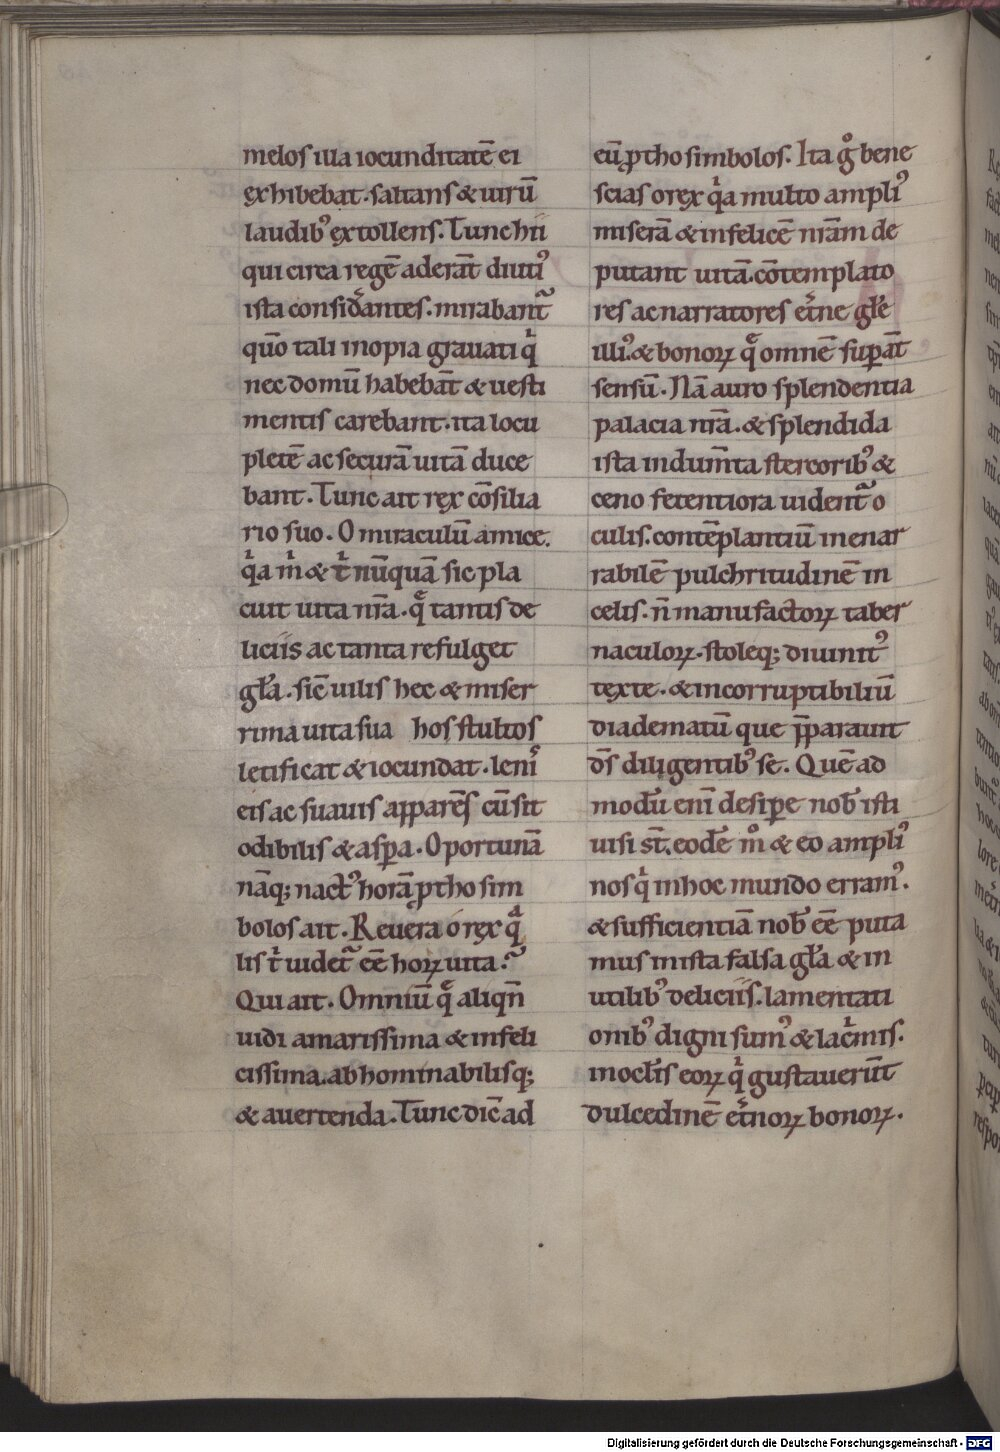 melos illa iocunditatē ei
exhibebat. saltans & uirū
laudibꝰ extollens. Tunc hii
qui circa regē aderāt diutiꝰ
ista considantes. mirabant᷑
quō tali inopia grauati qͥ
nec domū habebāt & uesti
mentis carebant. ita locu
pletē ac securā uitā duce
bant. Tunc ait rex cōsilia
rio suo. O miraculū amice.
qͥa m̓ & t̓ nūquā sic pla
cuit uita nr̄a. q̄ tantis de
liciis ac tanta refulget
gl̓a. sic̄ uilis hec & miser
rima uita sua hos stultos
letificat & iocundat. leniꝰ
eis ac suauis apparēs cū sit
odibilis & aspa. Oportunā
nāq; nactꝰ horā ꝓthosim
bolos ait. Reuera o rex qᷓ
lis t̓ uidet᷑ eē hoꝝ uita.
Qui ait. Omniū q̄ aliqn̄
uidi amarissima & infeli
cissima. abhominabilisq;
& auertenda. Tunc dic̄ ad
eū ꝓthosimbolos. Ita gͦ bene
scias o rex qͥa multo ampliꝰ
miserā & infelicē nr̄am de
putant uitā. cōtemplato
res ac narratores et̓ne gl̓e
illiꝰ. & bonoꝝ q̄ omnē supāt
sensū. Nā auro splendentia
palacia nr̄a. & splendida
ista indum̄ta stercoribꝰ &
ceno fetentiora uident᷑ o
culis. contēplantiū inenar
rabilē pulchritudinē in
celis. n̄ manufactoꝝ taber
naculoꝝ. stoleq; diuinitꝰ
texte. & incorruptibiliū
diadematū que p̄parauit
dr̄s diligentibꝰ se. Quē ad
modū eni desipe nob̄ isti
uisi st̄. eodē mͦ & eo ampliꝰ
nos qͥ in hoc mundo erramꝰ.
& sufficientiā nob̄ eē puta
mus in ista falsa gl̓a & in
utilibꝰ deliciis. lamentati
onibꝰ digni sumꝰ & lac̓mis.
in ocl̓is eoꝝ qͥ gustauerūt
dulcedinē et̓noꝝ bonoꝝ.
Digitalisierung gefördert durch die Deutsche Forschungsgemeinschaft - DFG